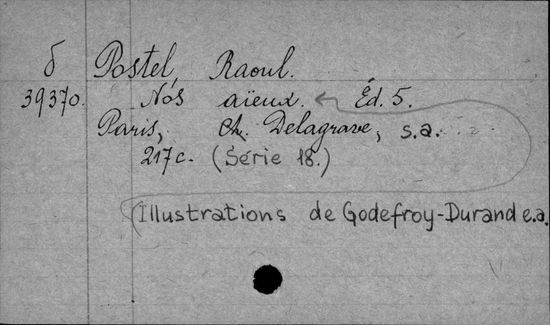 б Postel, Raoul.
39370. Nos aïeux. Éd. 5.
Paris, Ch. Delagrave, s.a.
217c. (Série 18.)
(Illustrations de Godefroy-Durand e.a.